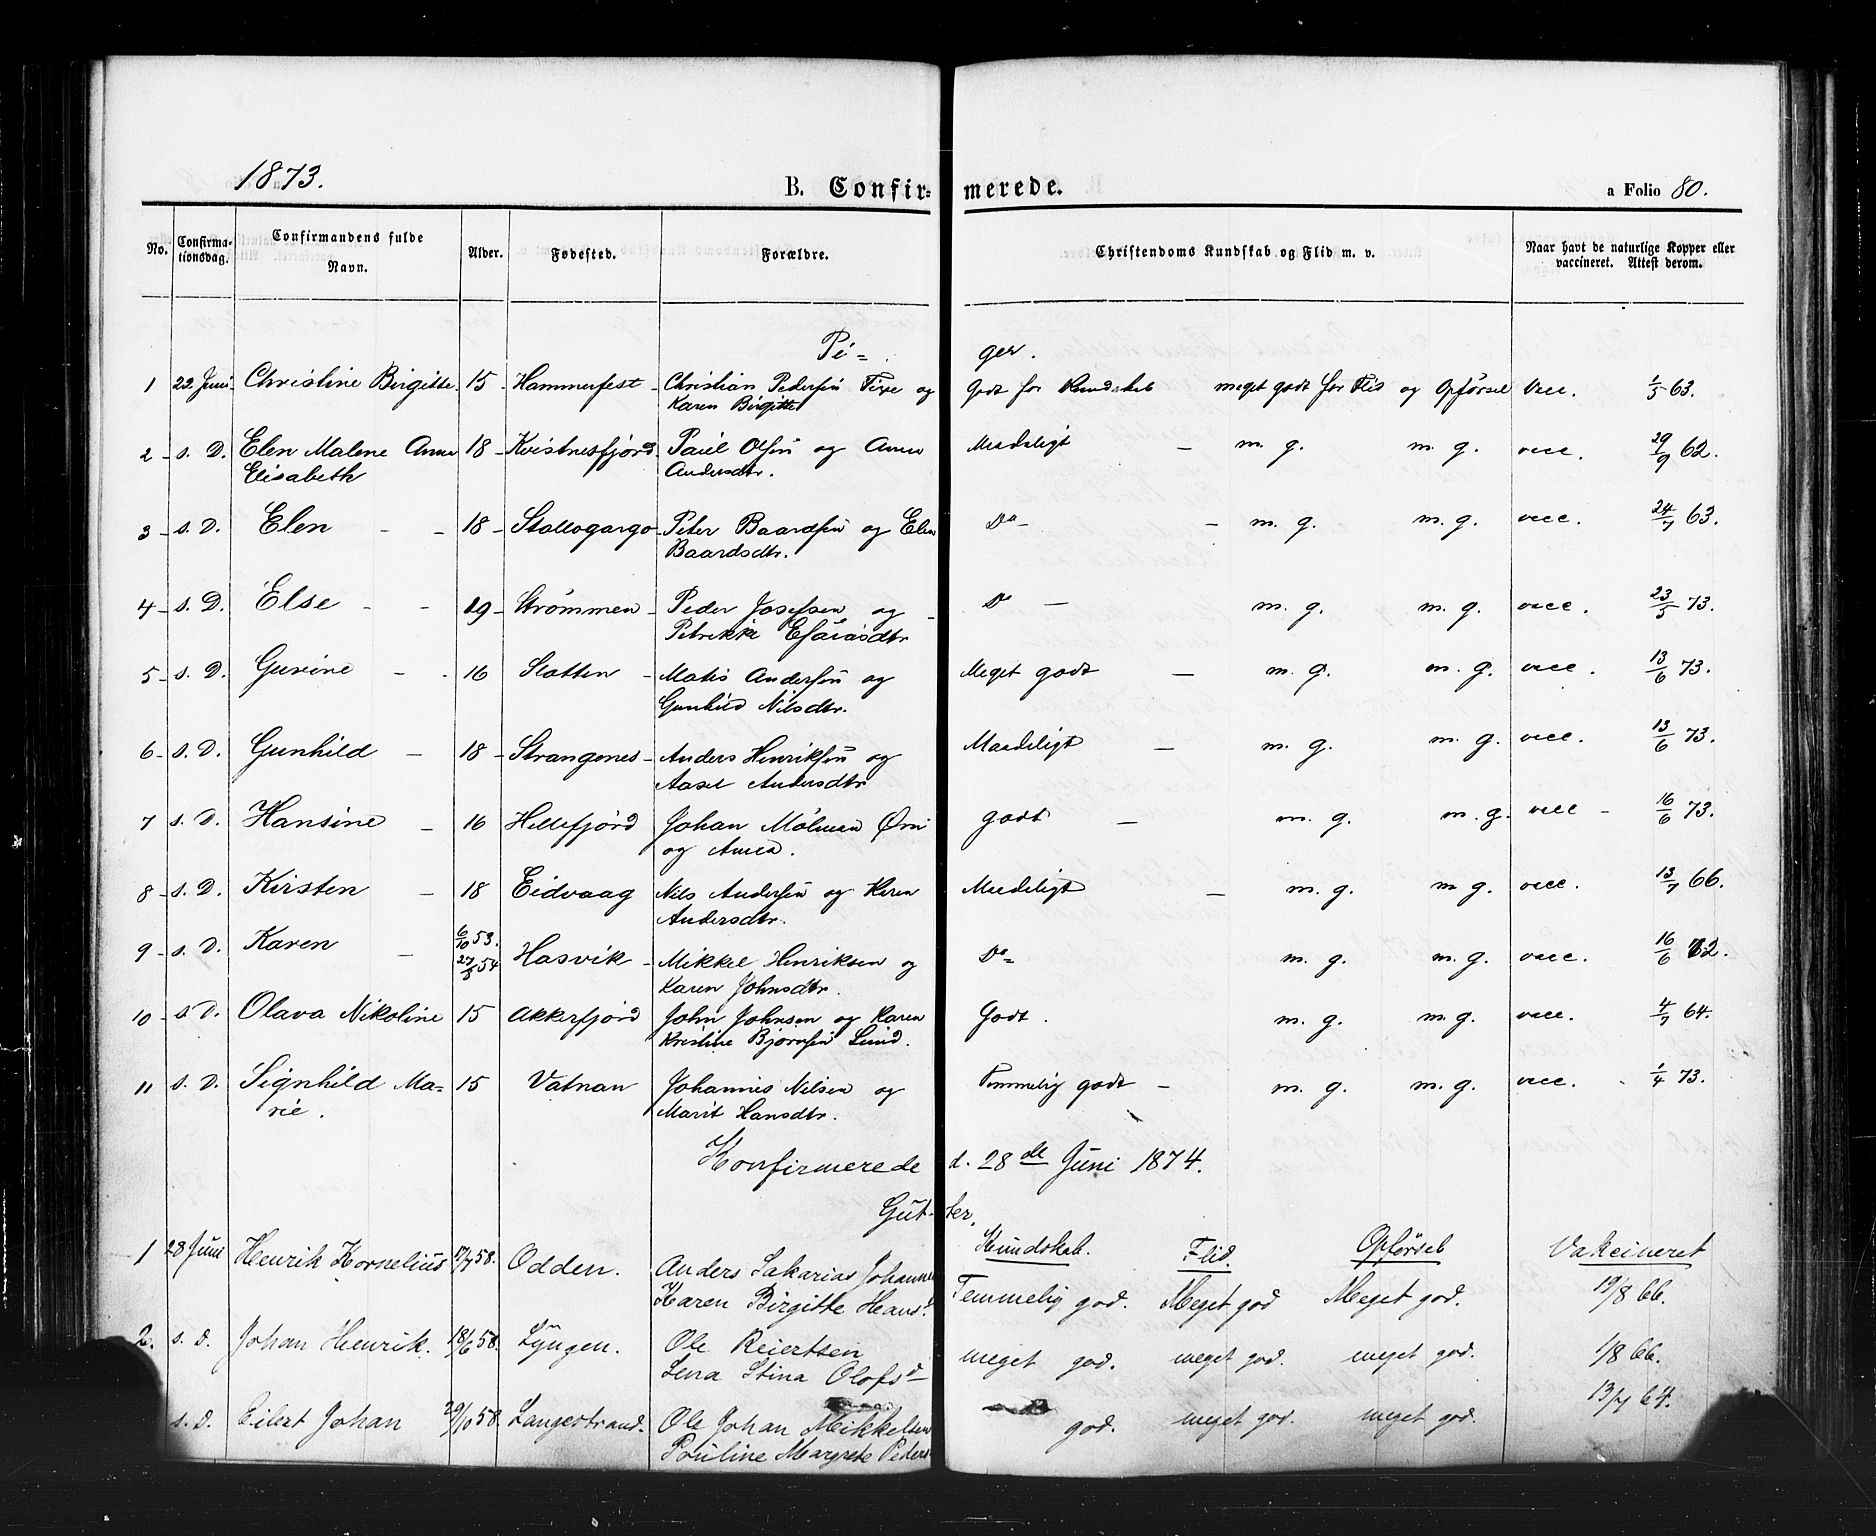 1873. B. Confir- merede. a Folio 80.
No. Confirma- Confirmandens fulde Alder. Fødested. Forældre. Christendoms Kundskab og Flid m. v. Naar havt de naturlige Kopper eller
tionsdag. Navn. vaccineret. Attest derom.
Pi- ger.
1 22 Juni Christine Birgitte 15 Hammerfest Christian Pedersen og Godt for Kundskab meget godt for Flid og Opførsel Vacc. 1/5 63.
Karen Birgitte
2 s. D. Elen Malene Anna 18 Kvistnesfjord Paul Olsen og Anna Maadeligt - m. g. m. g. vacc. 29/9 62.
Elisabeth Andersdtr.
3 s. D. Elen 18 Stallogargo Peter Baardsen og Elen Do - m. g. m. g. vacc. 24/7 63.
Baardsdtr.
4 s. D. Else 19 Strømmen Peder Josefsen og Do - m. g. m. g. vacc. 23/5 73.
Petrikke Esaiasdtr
5 s. D. Gurine 16 Slotten Matis Andersen og Meget godt - m. g. m. g. vacc. 13/6 73.
Gunhild Nilsdtr.
6 s. D. Gunhild 18 Strangenes Anders Henriksen og Maadeligt - m. g. m. g. vacc. 13/6 73.
Aasel Andersdtr
7 s. D. Hansine 16 Hellefjord Johan Mølman godt - m. g. m. g. vacc - 16/6 73.
og Anna.
8 s. D. Kirsten 18 Eidvaag Nils Andersen og Karen Maadeligt - m. g. m. g. vacc. 13/7 66.
Andersdtr.
9 s. D. Karen 6/10 53. 27/5 54 Hasvik Mikkel Henriksen og Do m. g. m. g. vacc. 16/6 62.
Karen Johnsdtr.
10 s D. Olava Nikoline 15 Akkerfjord John Johnsen og Karen Godt. m. g. m. g. vacc. 4/7 64.
Kristine Bjørnsen Lund.
11 s. D. Signhild Ma- 15 Vatnan Johannes Nilsen og Temmelig godt - m. g. m. g. vacc. 1/4 73.
rie. Marit Hansdtr.
Konfirmerede d. 28de Juni 1874.
Gut- ter.
Kundskab. Flid. Opførsel Vakcineret
1 28 Juni Henrik Kornelius 17/7 58. Odden. Anders Sakarias Johannes
Karen Birgitte Hans d Temmelig god. Meget god Meget god. 19/8 66.
2. s. D. Johan Henrik. 18/6 58. Lyngen. Ole Reiertsen
Lena Stina Olofsd meget god. meget god. meget god. 1/8 66.
s. D. Eilert Johan 29/10 58. Langestrand. Ole Johan Mikkelsen god. meget god. meget god. 13/7 64.
Pouline Margrete Peders